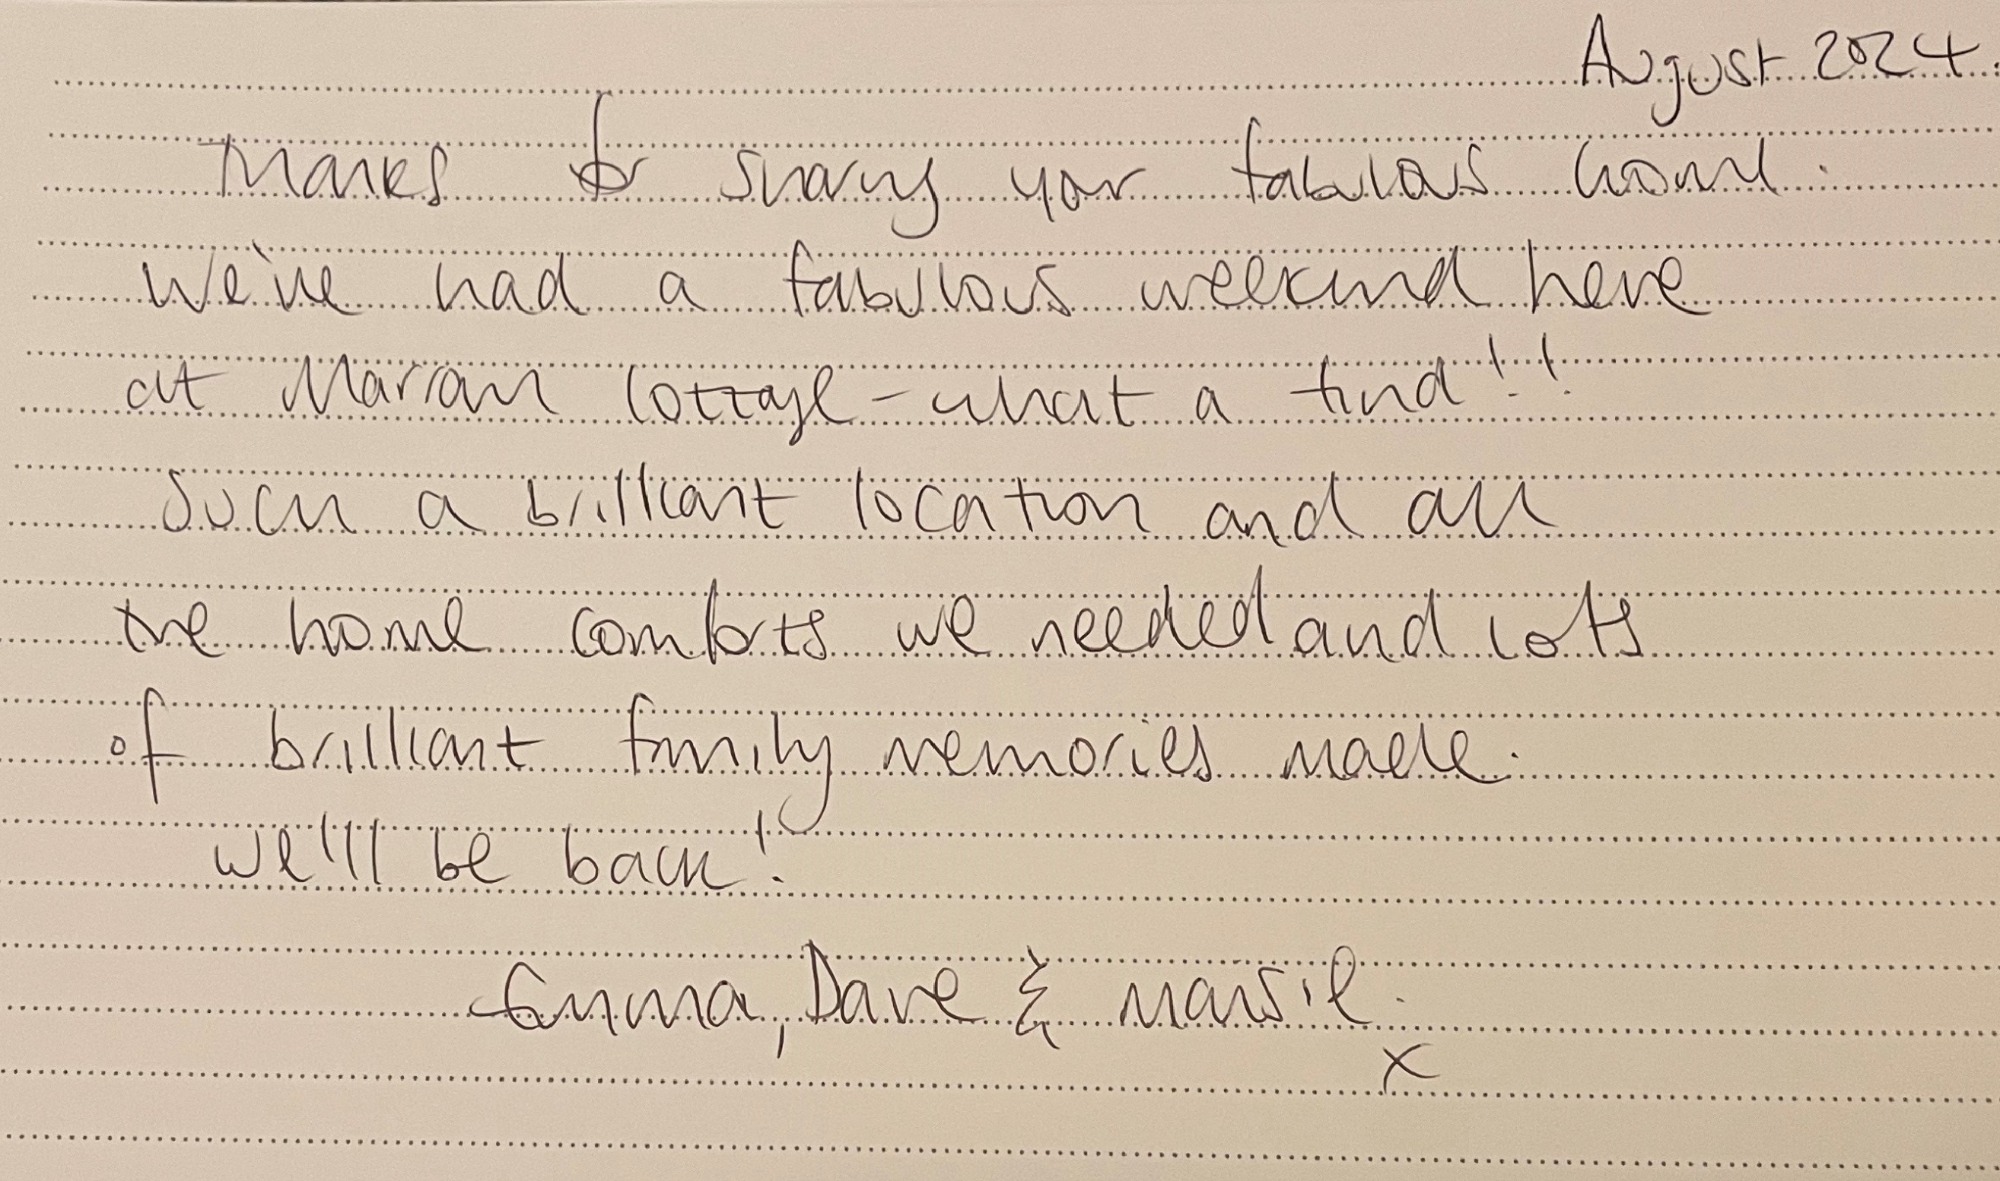 August 2024.
Thanks for sharing your fabulous home.
We've had a fabulous weekend here
at Marram Cottage - what a find!!
Such a brilliant location and all
the home comforts we needed and lots
of brilliant family memories made.
We'll be back!
Emma, Dave & Maisie.
x